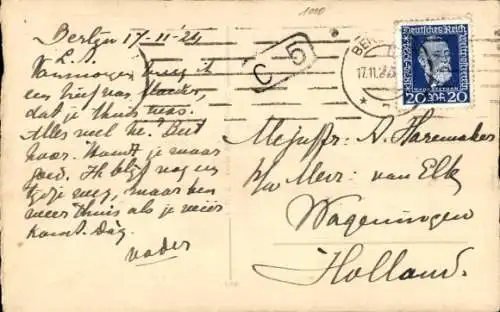 Berlijn 17-11-24
L. A.
Vanmorgen kreeg ik
een brief van Moeder,
dat je thuis was.
Alles wel he. Best
hoor. Kom je maar
goed. Ik blijf nog een
tijdje weg, maar ben
weer thuis als je weer
komt. Dag.
Vader
1000
C 5
BER
17.11.2
Deutsches Reich
1874-1924
Weltpostverein
20 20
Mejuffr: A. Haremaker
p/a Mevr: van Elk
Wageningen
Holland.